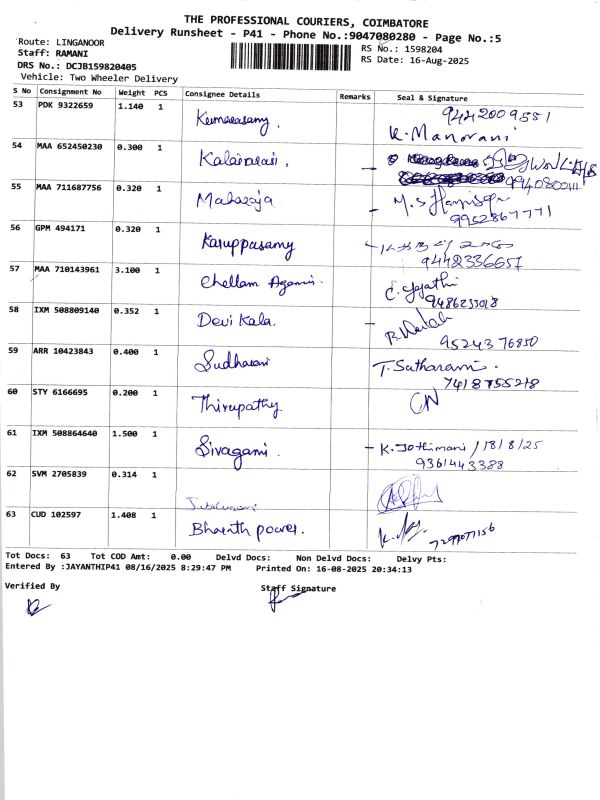 THE PROFESSIONAL COURIERS, COIMBATORE
Delivery Runsheet - P41 - Phone No.:9047080280 - Page No.:5
Route: LINGANOOR
Staff: RAMANI
DRS No.: DCJB159820405
Vehicle: Two Wheeler Delivery
RS No.: 1598204
RS Date: 16-Aug-2025
S No Consignment No Weight PCS Consignee Details Remarks Seal & Signature
53 PDK 9322659 1.140 1 Kumarasamy. 9442009551
K. Manorani
54 MAA 652450230 0.300 1 Kalaiarasi.
9940800111
55 MAA 711687756 0.320 1 Maharaja
9952867771
56 GPM 494171 0.320 1 Karuppasamy
9442336657
57 MAA 710143961 3.100 1 Chellam Agami.
9486233018
58 IXM 508809140 0.352 1 Devi Kala.
9524376850
59 ARR 10423843 0.400 1 Sudharani T. Sutharani.
7418755278
60 STY 6166695 0.200 1 Thirupathy. CN
61 IXM 508864640 1.500 1 Sivagami. - K. Jothimani / 18/8/25
9361443388
62 SVM 2705839 0.314 1
63 CUD 102597 1.408 1 Bharath power.
7299077156
Tot Docs: 63 Tot COD Amt: 0.00 Delvd Docs: Non Delvd Docs: Delvy Pts:
Entered By :JAYANTHIP41 08/16/2025 8:29:47 PM Printed On: 16-08-2025 20:34:13
Verified By Staff Signature